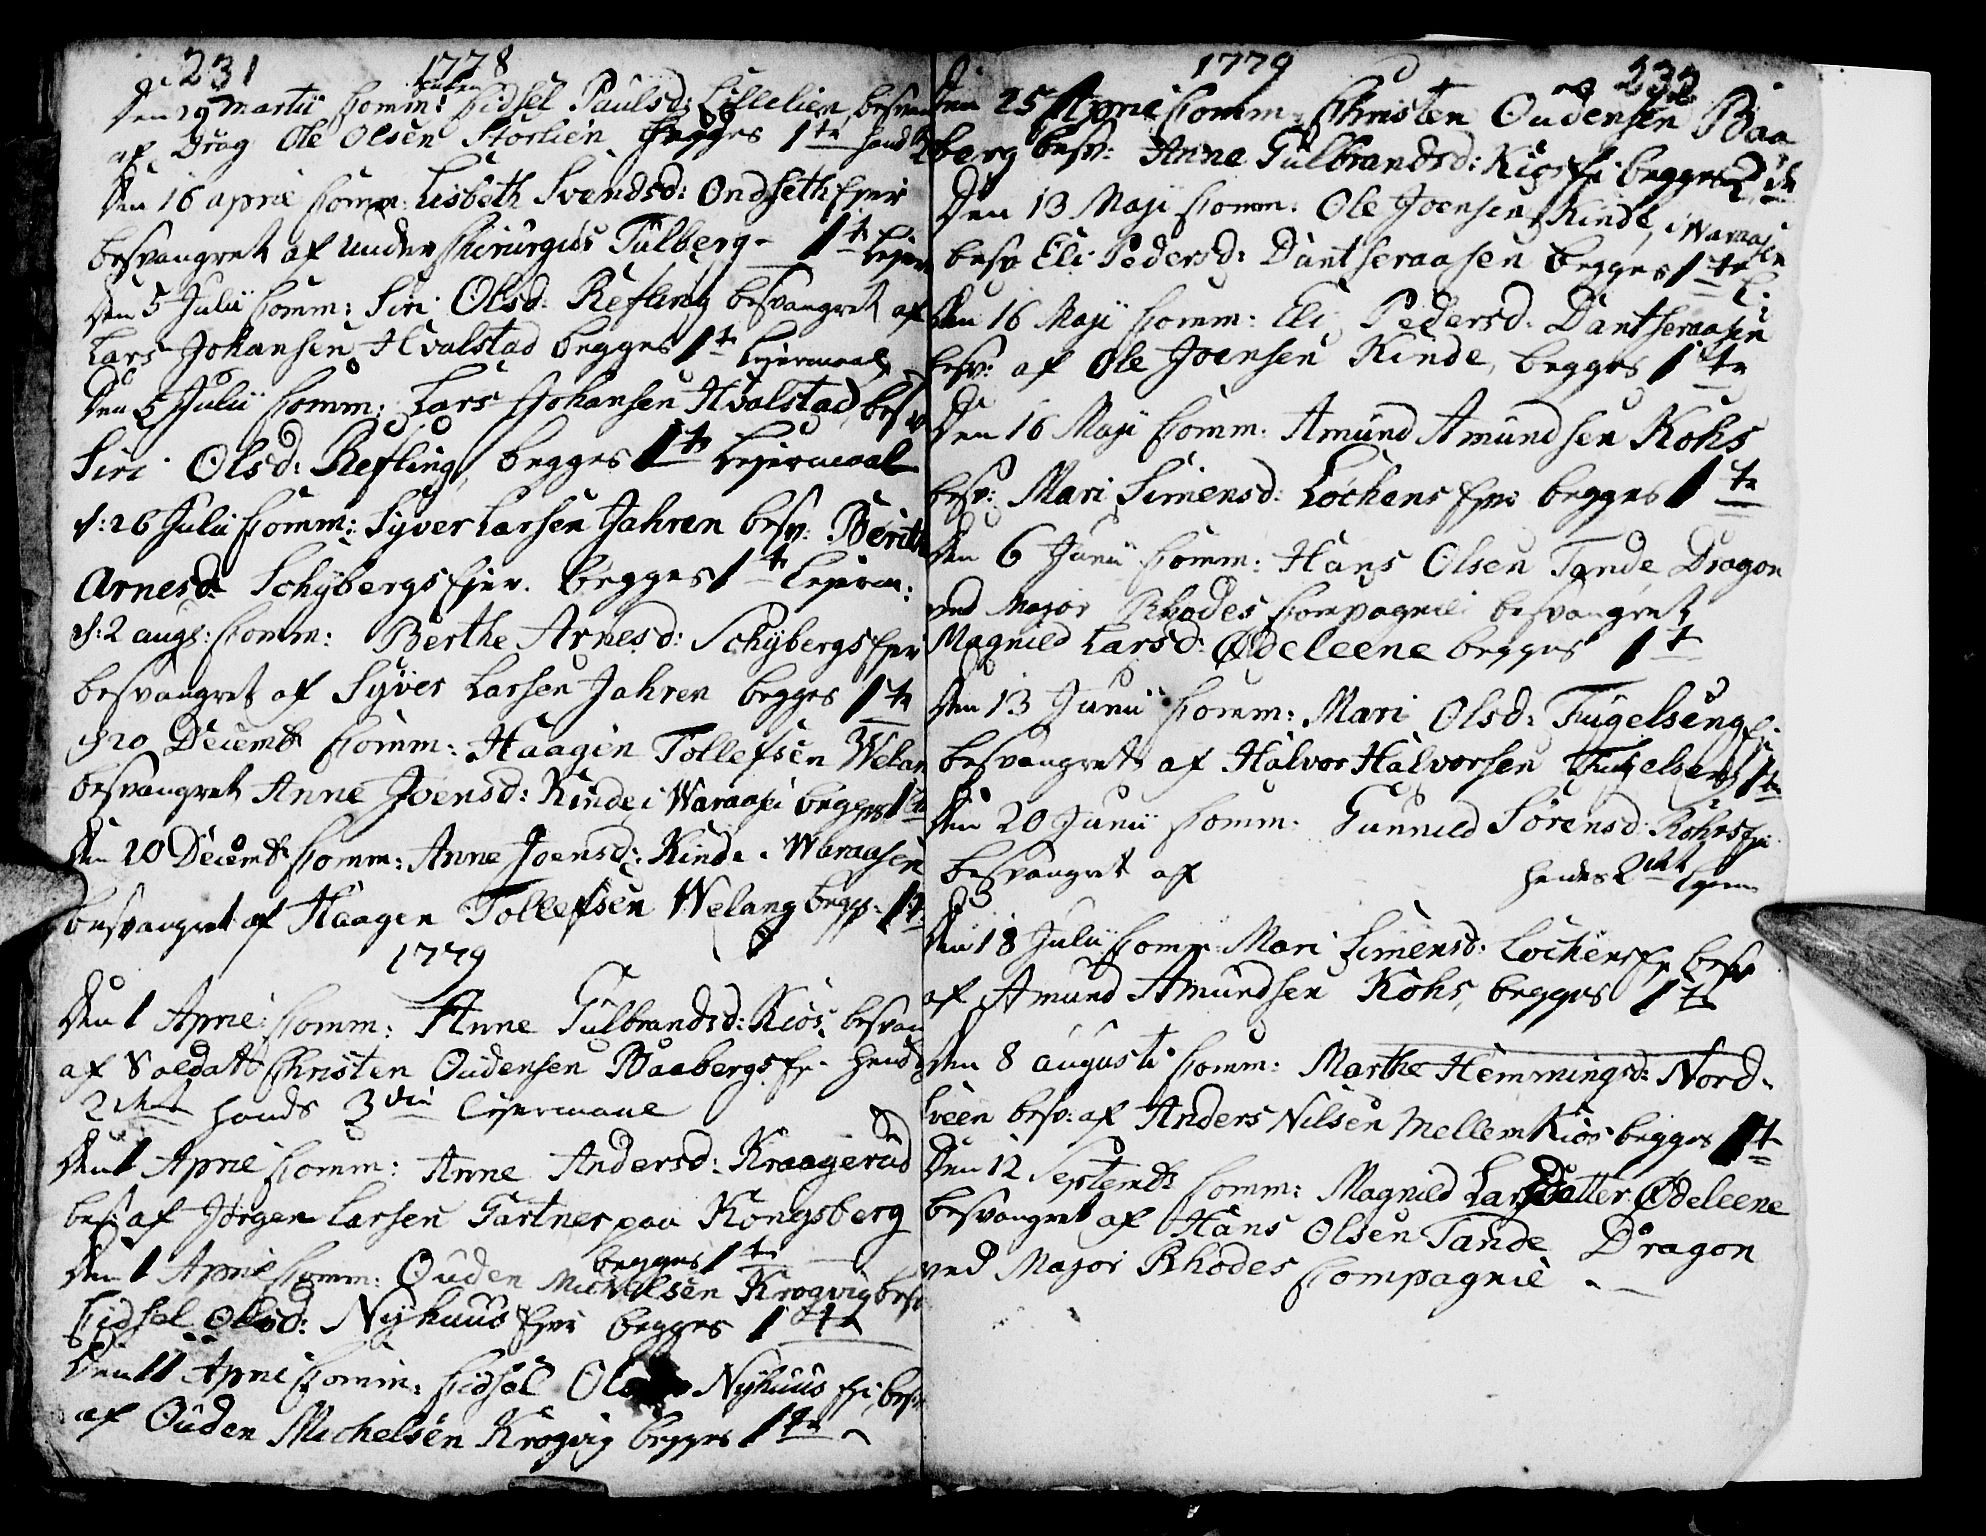 231 1778
Den 29 Martii Comm: Enken Sidsel Paulsd: Lillelien, besvan
af Drag Ole Olsen Storlien begges 1te
Den 16 April Comm: Lisbeth Svendsd: Ondseth Ejer
besvangret af under Chirurgus Tulberg - 1t Lejerm
Den 5 Julii Comm: Siri Olsd: Refling besvangret af
Lars Johansen Hvalstad begges 1t Lejermaal
Den 5 Julii Comm: Lars Johansen Hvalstad, besv
Siri Olsd: Refling, begges 1te Lejermaal
d: 26 Julii Comm: Syver Larsen Jahren besv: Berith
Arnesd: Schybergs Ejer. begges 1t Lejerm:
d: 2 augs: Comm: Berthe Arnesd: Schybergs Ejer
besvangret af Syver Larsen Jahren begges 1te
d 20 Decembr Comm: Haagen Tollefsen Welang
besvangret Anne Joensd: Kinde i Waraasen begges 1te
Den 20 Decembr Comm: Anne Joensd: Kinde i Waraasen
besvangret af Haagen Tollefsen Welang begg: 1te
1779
Den 1 April Comm: Anne Gulbrandsd: Kiøs, besvan
af Soldat Christen Oudensen Baabergs Ej: hendes
2det hands 3die Lejermaal
Den 1 April Comm: Anne Andersd: Kraagerud
bes: af Jørgen Larsen Gartner paa Kongsberg
begges 1te
Den 1 April Comm: Ouden Michelsen Krogvig besv
Sidsel Olsd: Nyhuus Ejer begges 1te
Den 11 April Comm: Sidsel Ols Nyhuus Ej: besv
af Ouden Michelsen Krogvig begges 1te
1779 232
Den 25 April Comm: Christen Oudensen Baa
berg besv: Anne Gulbrandsd: Kiøs Ej: begges 2de
Den 13 Maji Comm: Ole Joensen Kinde, i Waraasen
besv Eli Pedersd: Dantseraasen begges 1te L:
Den 16 Maji Comm: Eli Pedersd: Dantseraasen
besv: af Ole Joensen Kinde, begges 1te
Den 16 Maji Comm: Amund Amundsen Kohs
besv: Mari Simensd: Lochens Ejer begges 1te
Den 6 Junii Comm: Hans Olsen Tande Dragon
ved Major Rhodes Compagnie besvangret
Magnild Larsd: Ødeleene begges 1t
Den 13 Junii Comm: Mari Olsd: Fugelseng E:
besvangret af Halvor Halvorsen Fugelseng 1te
Den 20 Junii Comm: Gunnild Sørensd: Kohrs Ej:
besvangret af hendes 2det Lejerm
Den 18 Julii Comm: Mari Simensd: Lochens Ej besv
af Amund Amundsen Kohs, begges 1te
Den 8 augusti Comm: Marthe Hemmingsd: Nord-
sveen besv: af Anders Nilsen Mellem Kiøs begges 1t
Den 12 Septembr Comm: Magnild Larsdatter Ødeleene
besvangret af Hans Olsen Tande Dragon
ved Major Rhodes Compagnie -